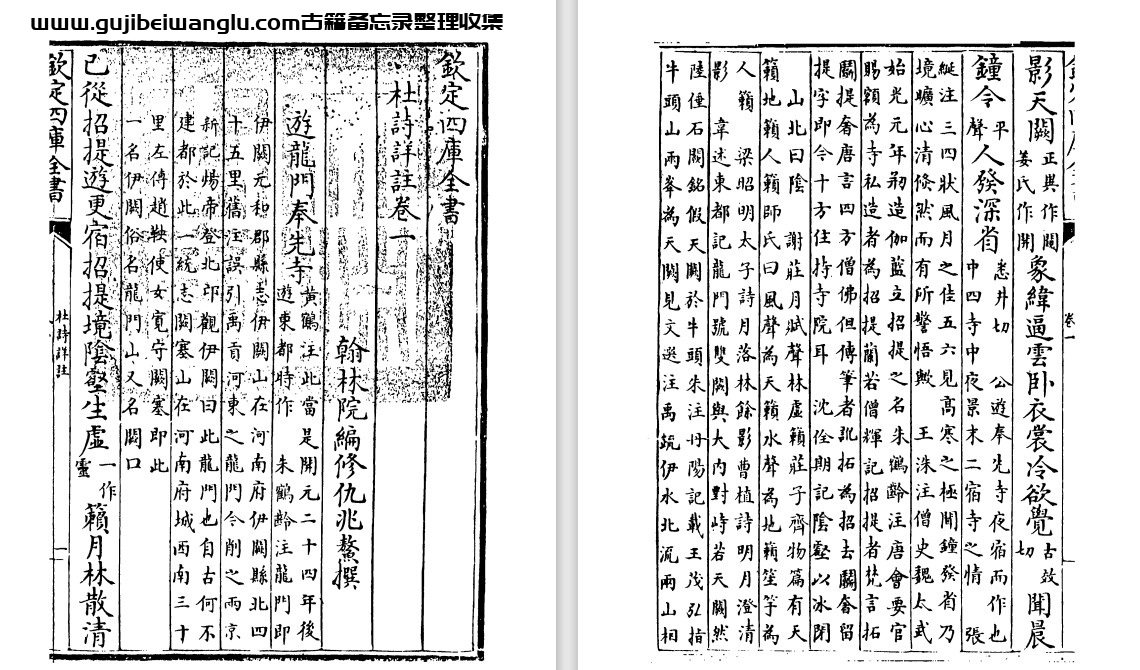 www.gujibeiwanglu.com古籍备忘录整理收集
欽定四庫全書
杜詩詳註卷一
翰林院編修仇兆鰲撰
遊龍門奉先寺
黃鶴注此當是開元二十四年後
遊東都時作 朱鶴齡注龍門即
伊闕元和郡縣志伊闕山在河南府伊闕縣北四
十五里舊注誤引禹貢河東之龍門今削之兩京
新記煬帝登北邙觀伊闕曰此龍門也自古何不
建都於此一統志闕塞山在河南府城西南三十
里左傳趙鞅使女寬守闕塞即此
一名伊闕俗名龍門山又名闕口
已從招提遊更宿招提境陰壑生虛一作靈籟月林散清
欽定四庫全書 杜詩詳註 一
卷一
影天闕正異作閱姜氏作開象緯逼雲卧衣裳冷欲覺古效切聞晨
鐘令平聲人發深省悉井切 公遊奉先寺夜宿而作也
中四寺中夜景末二宿寺之情 張
綖注三四狀風月之佳五六見高寒之極聞鐘發省乃
境曠心清倏然而有所警悟歟 王洙注僧史魏太武
始光元年刱造伽藍立招提之名朱鶴齡注唐會要官
賜額為寺私造者為招提蘭若僧輝記招提者梵言拓
鬬提奢唐言四方僧佛但傳筆者訛拓為招去鬬奢留
提字即今十方住持寺院耳 沈佺期記陰壑以冰閉
山北曰陰 謝莊月賦聲林虛籟莊子齊物篇有天
籟地籟人籟師氏曰風聲為天籟水聲為地籟笙竽為
人籟 梁昭明太子詩月落林餘影曹植詩明月澄清
影 韋述東都記龍門號雙闕與大内對峙若天闕然
陸倕石闕銘假天闕於牛頭朱注丹陽記載王茂弘指
牛頭山兩峯為天闕見文選注禹疏伊水北流兩山相